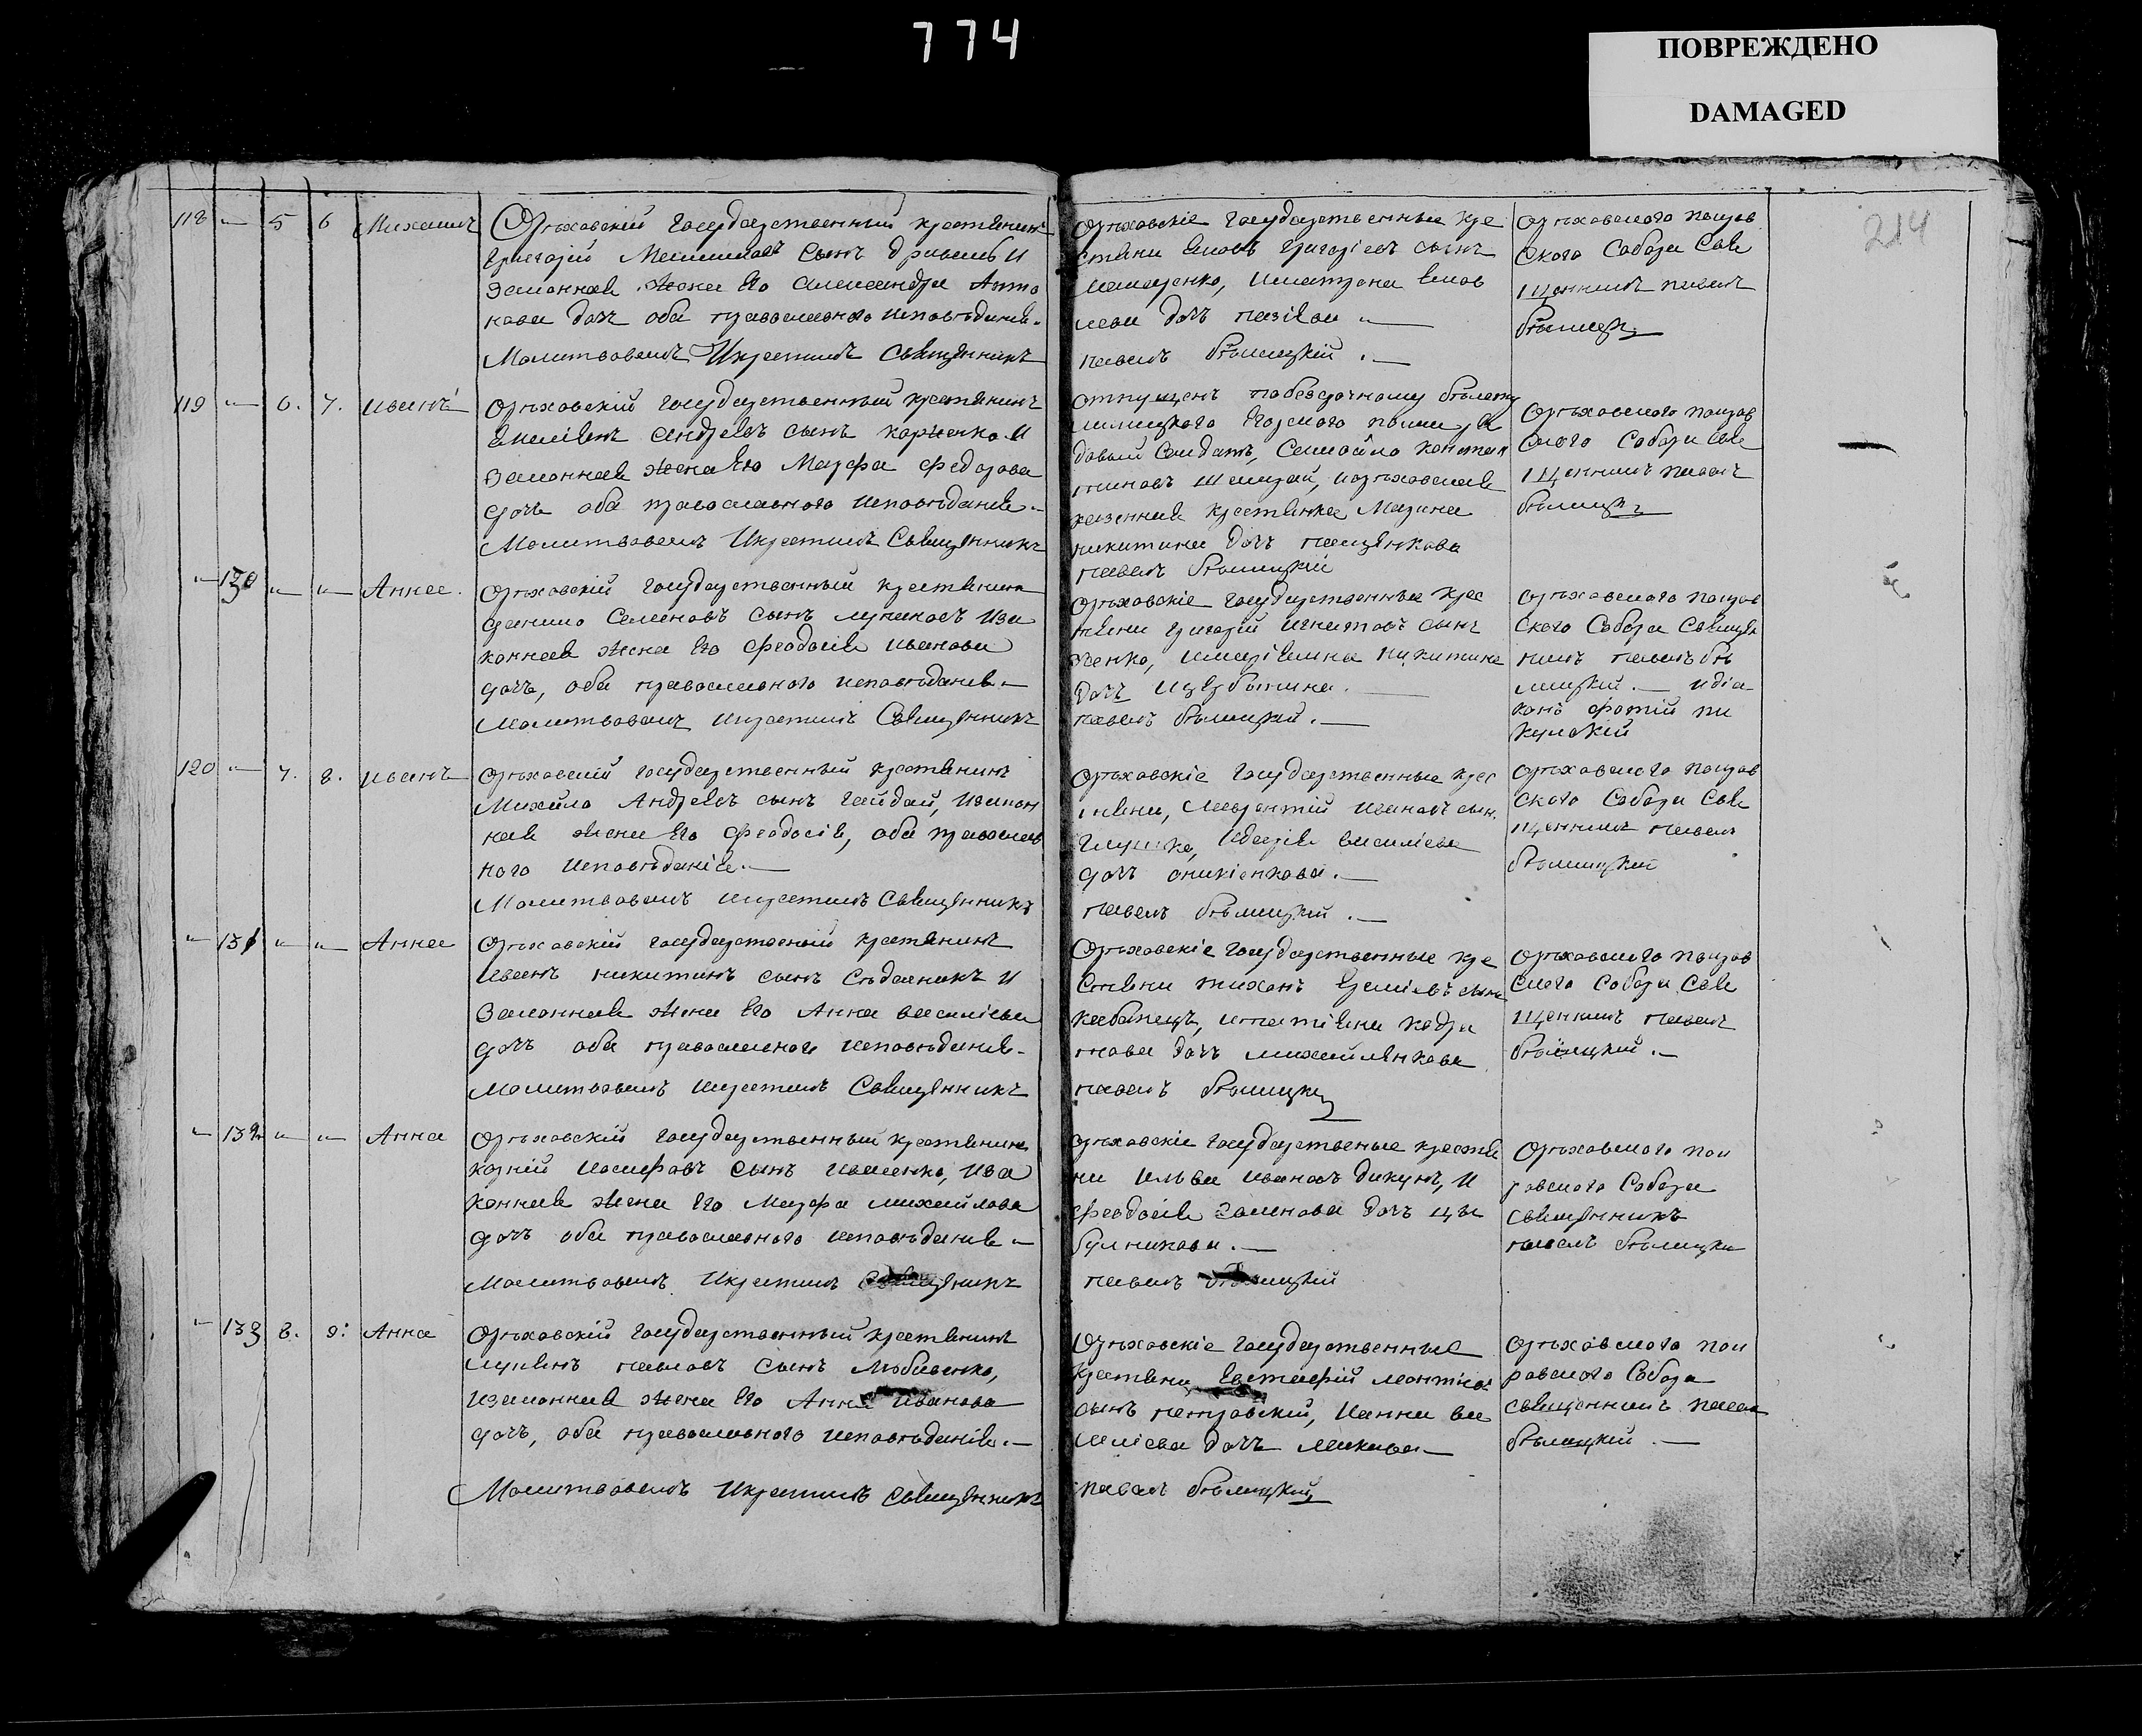 774
ПОВРЕЖДЕНО
DAMAGED
214
118 — 5 6 Михаилъ
Орѣховскій Государственный крестьянинъ
Григорій сынъ и
Законная жена Его Александра Анто
нова дочъ оба православнаго исповѣданія.
Молитвовалъ Икрестилъ Священникъ
Орѣховскіе Государственные кре
стьяне Григоріевъ сынъ
дочъ
Павелъ Бѣлицкій.
Орѣховскаго Покров
скаго Собора Свя
щенникъ Павелъ
Бѣлицкій
119 — 6. 7. Иванъ
Орѣховскій Государственный крестьянинъ
Андреевъ сынъ Корненко И
Законная жена Его Марфа Федорова
дочъ оба православнаго исповѣданія.
Молитвовалъ Икрестилъ Священникъ
Отпущенъ побезсрочному билету
Егорского полка ря
довый Солдатъ, Самойло Констан
тиновъ
казенная крестьянка Марина
Никитина дочъ
Павелъ Бѣлицкій
Орѣховскаго Покров
скаго Собора Свя
щенникъ Павелъ
Бѣлицкій
— 130 — — Анна.
Орѣховскій Государственный крестьянинъ
Данило Семеновъ сынъ Иза
конная жена Его Феодосія Иванова
дочъ, оба православнаго исповѣданія —
Молитвовалъ Икрестилъ Священникъ
Орѣховскіе Государственные крес
тьяне Григорій Игнатовъ сынъ
Никитина
дочъ
Павелъ Бѣлицкій. —
Орѣховскаго Покров
скаго Собора Священ
никъ Павелъ Бѣ
лицкій. — Идіа
конъ Фотій Пи
кульскій
120 — 7. 8. Иванъ
Орѣховскій Государственный крестьянинъ
Михайло Андреевъ сынъ Гайдай, Изакон
ная жена Его Феодосія, оба православ
наго исповѣданія. —
Молитвовалъ Икрестилъ Священникъ
Орѣховскіе Государственные крес
тьяне, Леонтій Ивановъ сынъ
Василіева
дочъ Оникіенкова. —
Павелъ Бѣлицкій. —
Орѣховскаго Покров
скаго Собора Свя
щенникъ Павелъ
Бѣлицкій
— 131 — — Анна
Орѣховскій Государственный крестьянинъ
Иванъ Никитинъ сынъ Сѣдельникъ И
Законная жена Его Анна Василіева
дочъ оба православнаго исповѣданія.
Молитвовалъ Икрестилъ Священникъ
Орѣховскіе Государственные кре
стьяне Тихонъ сынъ
Кабанецъ, Итатіяна Кодра
това дочъ Михайленкова
Павелъ Бѣлицкій
Орѣховскаго Покров
скаго Собора Свя
щенникъ Павелъ
Бѣлицкій. —
— 132 — — Анна
Орѣховскій Государственный крестьянинъ
Корній Иосифовъ сынъ Иваненко, Иза
конная жена Его Марфа Михайлова
дочъ оба православнаго исповѣданія —
Молитвовалъ Икрестилъ Священникъ
Орѣховскіе Государственные крестья
не Илья Ивановъ Дикунъ, И
Феодосія Семенова дочъ Цы
булникова. —
Павелъ Бѣлицкій
Орѣховскаго Пок
ровскаго Собора
Священникъ
Павелъ Бѣлицкій
— 133 8. 9. Анна
Орѣховскій Государственный крестьянинъ
Лукьянъ Павловъ сынъ Любивенко,
Изаконная жена Его Анна Иванова
дочъ, оба православнаго исповѣданія. —
Молитвовалъ Икрестилъ Священникъ
Орѣховскіе Государственные
крестьяне Евстафій Леонтіевъ
сынъ Петровскій, Ианна Ва
силіева дочъ
Павелъ Бѣлицкій
Орѣховскаго Пок
ровскаго Собора
Священникъ Павелъ
Бѣлицкій. —